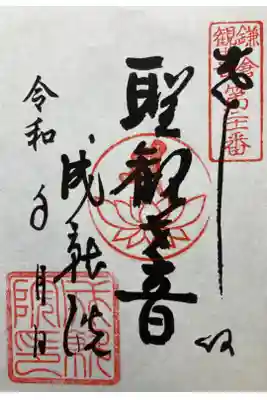 奉拝
聖観世音
成就院
令和 年 月 日
鎌倉
観音
成就
院印